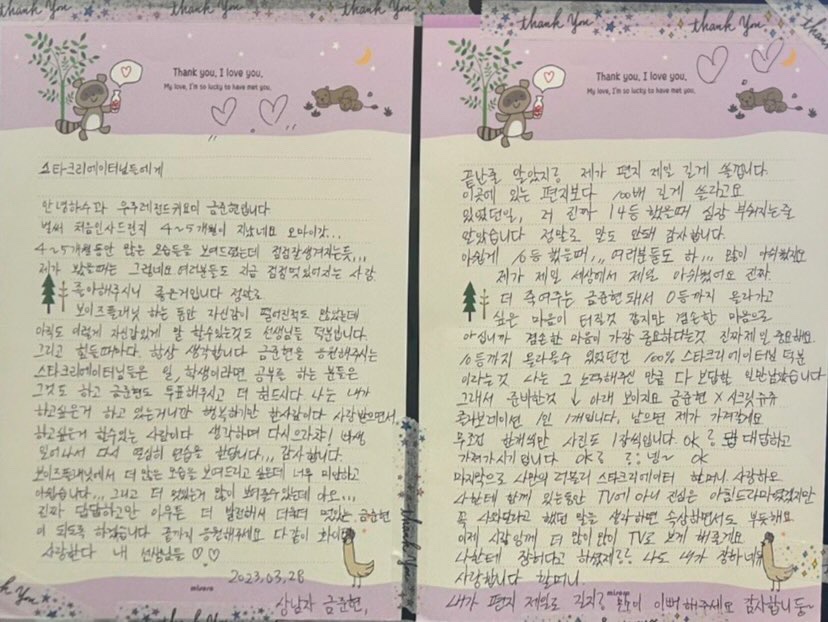 thank you
thank you
thank you
Thank you, I love you.
My love, I'm so lucky to have met you.
스타크리에이터님들에게
안녕하수콰 우주레전드귀요미 금준현입니다
벌써 처음인사드린지 4~5개월이 지났네요 오마이갓...
4~5개월동안 많은 모습들을 보여드렸는데 점점잘생겨지는듯...
제가 봤을때는 그렇네요 여러분들도 지금 점점멋있어지는 사람
좋아해주시니 좋은거입니다 정말로
보이즈플래닛 하는 동안 자신감이 떨어진적도 많았는데
아직도 이렇게 자신감있게 말 할수있는것도 선생님들 덕분입니다.
그리고 힘들때마다. 항상 생각합니다 금준현을 응원해주시는
스타크리에이터님들은 일, 학생이라면 공부를 하는 분들은
그것도 하고 금준현도 투표해주시고 더 힘드시다 나는 내가
하고싶은거 하고 있는거니깐 행복하기만 한사람이다 사랑받으면서
하고싶은거 할수있는 사람이다 생각하며 다시으라차!
일어나서 다시 열심히 연습을 한답니다... 감사합니다.
보이즈플래닛에서 더 많은 모습을 보여드리고 싶은데 너무 미안하고
아쉽습니다... 그리고 더 멋있는거 많이 보여줄수있는데 아오...
진짜 답답하고만 아무튼 더 발전해서 더욱더 멋있는 금준현
이 되도록 하겠습니다 끝까지 응원해주세요 다같이 화이팅
사랑한다 내 선생님들 ♡♡
2023.03.28
상남자 금준현.
mimoro
thank you
thank you
Thank you, I love you.
My love, I'm so lucky to have met you.
끝난줄 알았지롱 제가 편지 제일 길게 쓸겁니다.
이곳에 있는 편지보다 100배 길게 쓸라고요
있었던일, 저 진짜 14등 했을때 심장 부숴지는줄
알았습니다 정말로 말도 안돼 감사합니다.
아쉽게 10등 했을때... 여러분들도 하... 많이 아쉬웠지요
제가 제일 세상에서 제일 아쉬웠어요 진짜
더 죽여주는 금준현 돼서 0등까지 올라가고
싶은 마음이 터질것 같지만 겸손한 마음으로
아십니까 겸손한 마음이 가장 중요하다는것 진짜제일 중요해요.
10등까지 올라올수 있었던건 100% 스타크리에이터님 덕분
이라는것 나는 그 노력해주신 만큼 다 보답할 일만남았습니다
그래서 준비한것 ↓ 아래 보이지요 금준현 X 시크릿쥬쥬
콜라보레이션 1인 1개입니다. 남으면 제가 가져갈게요
무조건 한개씩만 사진도 1장씩입니다. OK? 대답하고
가져가시기 입니다 OK? ?: 넹~ OK
마지막으로 나만의 러블리 스타크리에이터 할머니. 사랑하오
나한테 함께 있는동안 TV에 아니 진심은 아침드라마였겠지만
꼭 나와달라고 했던 말을 생각하면 속상하면서도 뿌듯해요
이제 시작임께 더 많이많이 TV로 보게 해줄게요
나한테 장허다고 하셨제? 나도 내가 장하네유
사랑합니다 할머니.
내가 편지 제일로 길지? 많이 이뻐해주세요 감사합니둥~
mimoro
thank you
thank you